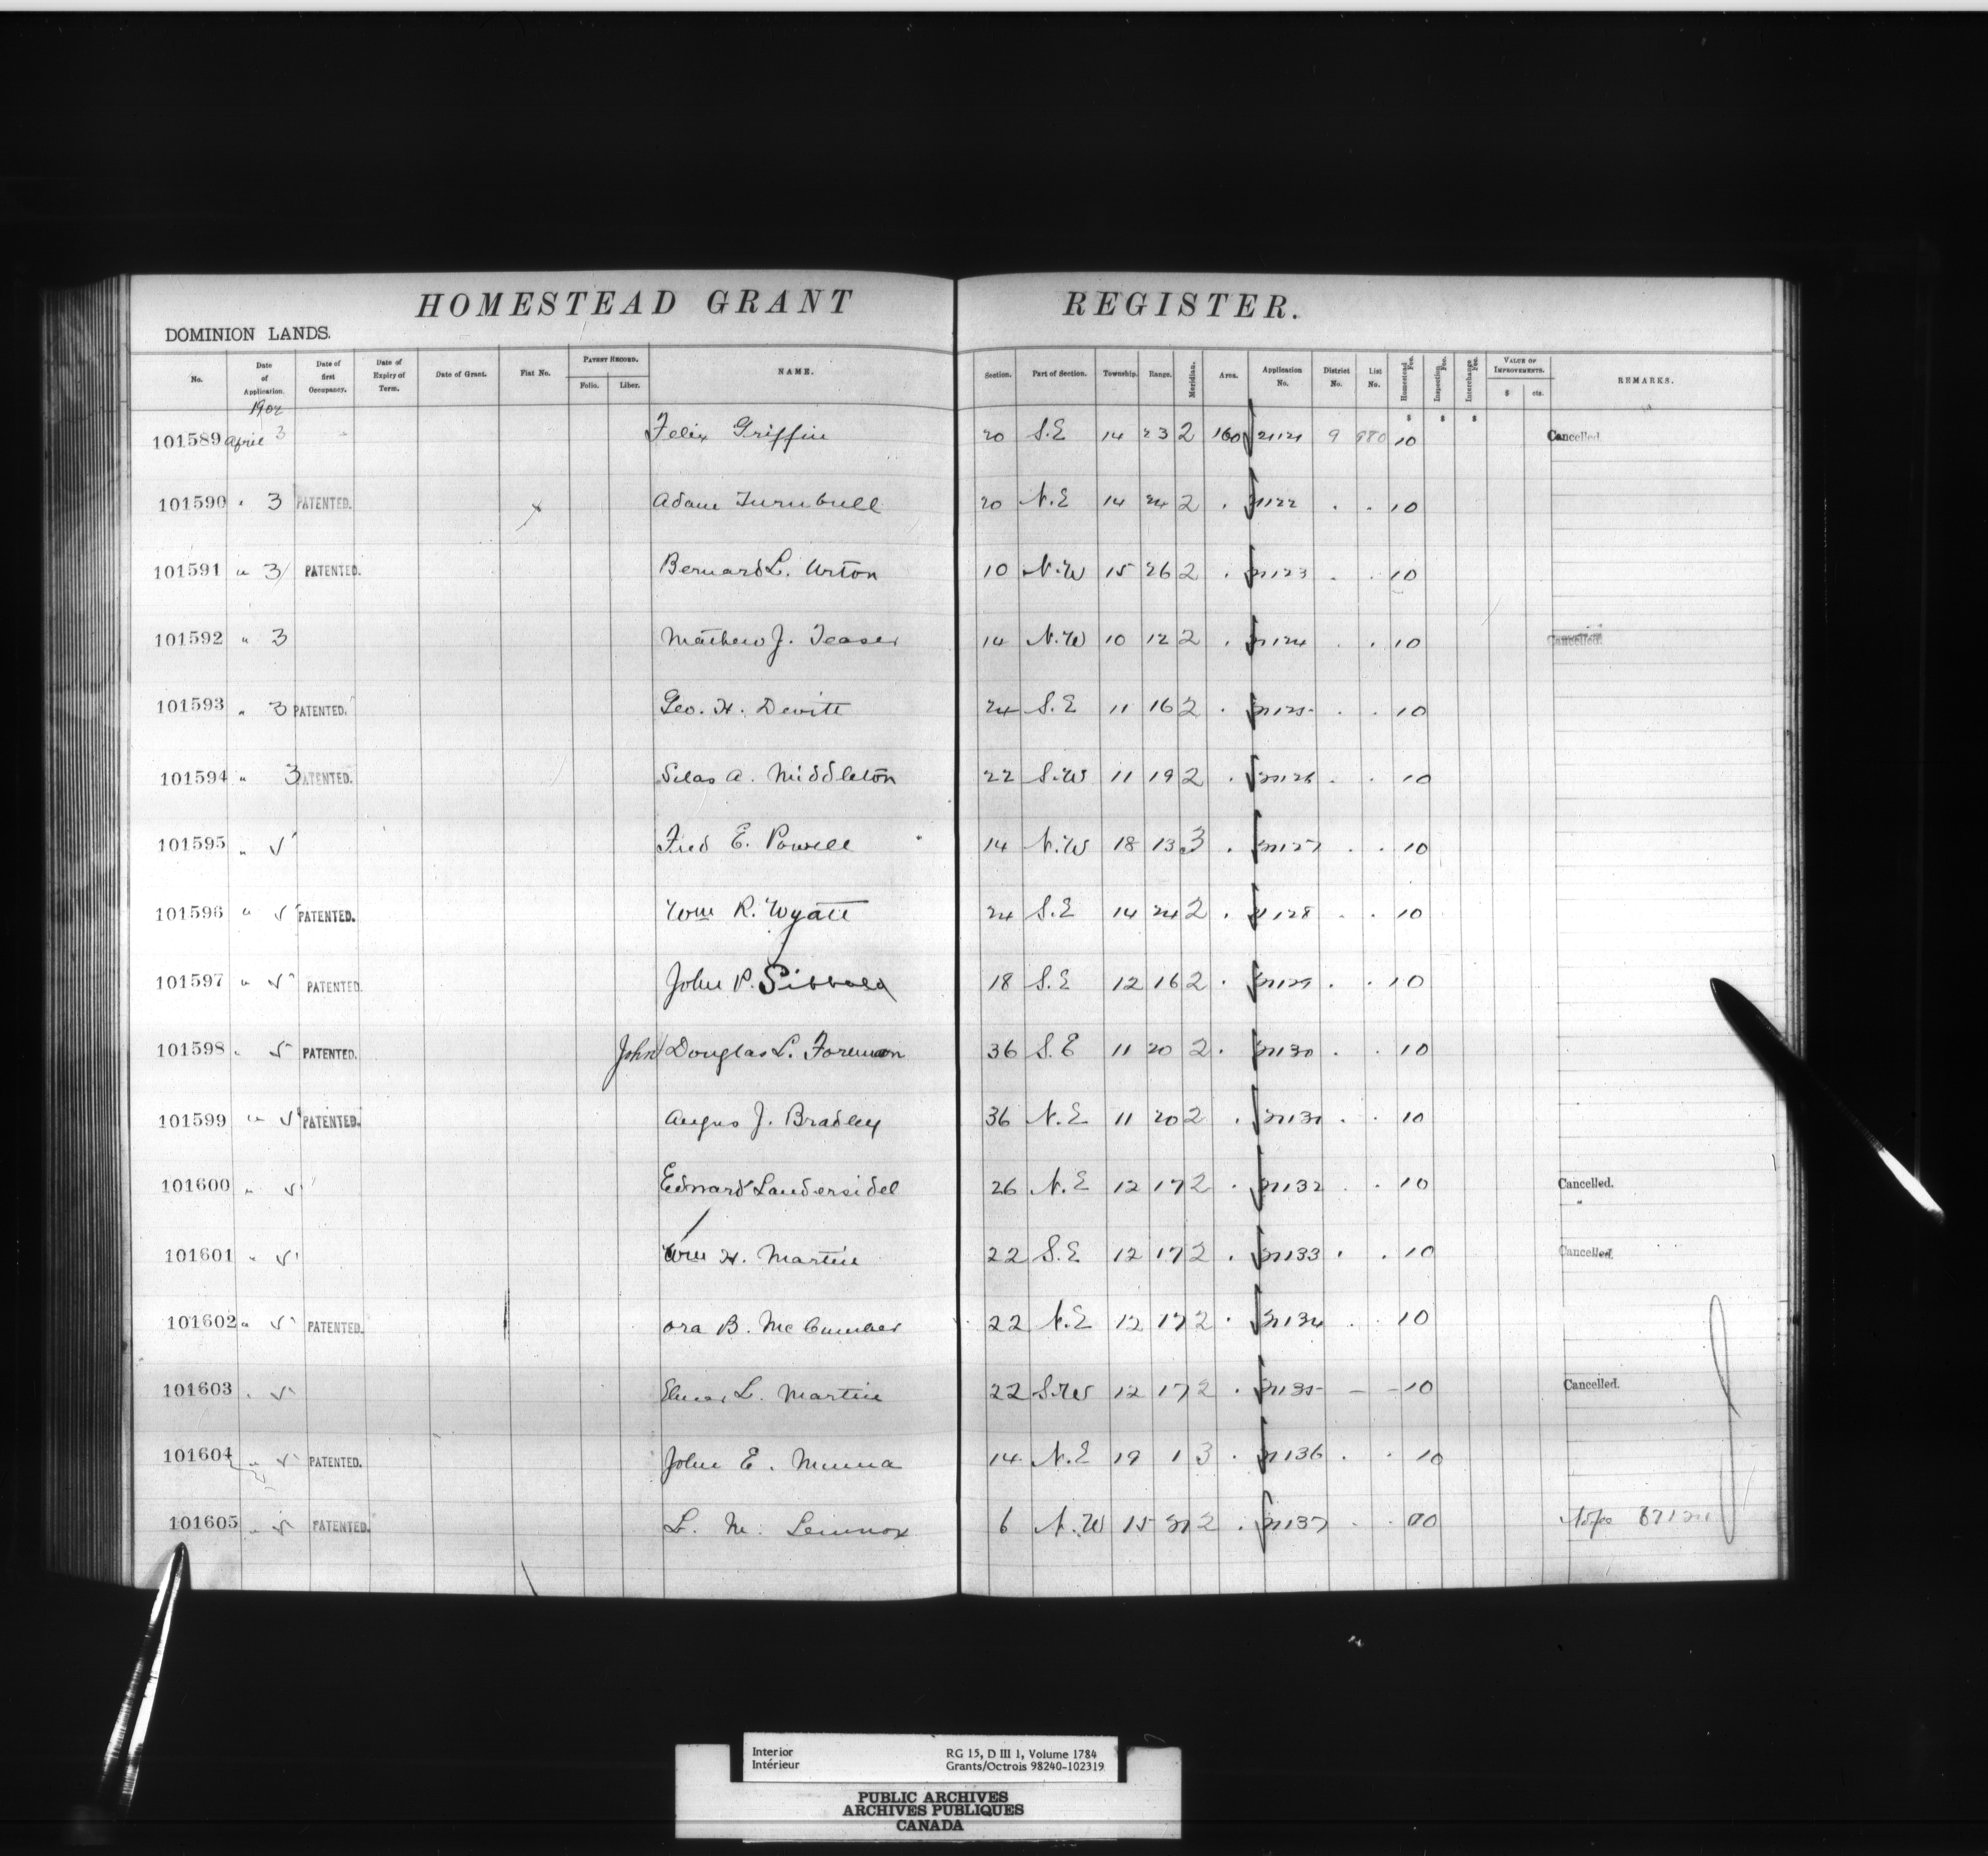 HOMESTEAD GRANT REGISTER.
DOMINION LANDS.
No. Date of Application. Date of first Occupancy. Date of Expiry of Term. Date of Grant. Fiat No. PATENT RECORD. Folio. Liber. NAME. Section. Part of Section. Township. Range. Meridian. Area. Application No. District No. List No. Homestead Fee. Inspection Fee. Interchange Fee. VALUE OF IMPROVEMENTS. $ cts. REMARKS.
1902
$ $ $
101589 April 3 Felix Griffin 20 S.E 14 23 2 160 21121 9 980 10 Cancelled.
101590 " 3 PATENTED. Adam Turnbull 20 N.E 14 24 2 . 21122 . . 10
101591 " 3 PATENTED. Bernard L. Urton 10 N.W 15 26 2 . 21123 . . 10
101592 " 3 Mathew J. Teaser 14 N.W 10 12 2 . 21124 . . 10 Cancelled.
101593 " 3 PATENTED. Geo. H. Devitt 24 S.E 11 16 2 . 21125 . . 10
101594 " 3 PATENTED. Silas A. Middleton 22 S.W 11 19 2 . 21126 . . 10
101595 " 5 Fred E. Powell 14 N.W 18 13 3 . 21127 . . 10
101596 " 5 PATENTED. Wm R. Wyatt 24 S.E 14 24 2 . 21128 . . 10
101597 " 5 PATENTED. John P. Sibbald 18 S.E 12 16 2 . 21129 . . 10
101598 " 5 PATENTED. John Douglas L. Foreman 36 S.E 11 20 2 . 21130 . . 10
101599 " 5 PATENTED. Angus J. Bradley 36 N.E 11 20 2 . 21131 . . 10
101600 " 5 Edward Laudersidel 26 N.E 12 17 2 . 21132 . . 10 Cancelled.
"
101601 " 5 Wm H. Martin 22 S.E 12 17 2 . 21133 . . 10 Cancelled.
101602 " 5 PATENTED. Ora B. McCumber 22 N.E 12 17 2 . 21134 . . 10
101603 " 5 Elmer L. Martin 22 S.W 12 17 2 . 21135 - - 10 Cancelled.
101604 " 5 PATENTED. John E. Munna 14 N.E 19 1 3 . 21136 . . 10
101605 " 5 PATENTED. L. M. Lennox 6 N.W 15 2 . 21137 . .
Interior
Intérieur
RG 15, D III 1, Volume 1784
Grants/Octrois 98240-102319
PUBLIC ARCHIVES
ARCHIVES PUBLIQUES
CANADA